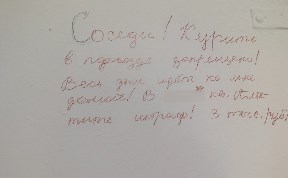 Соседи! Курить
в подъезде запрещено!
Весь дым идёт ко мне
домой! В * кв. Пла-
тите штраф! 3 тыс. руб!